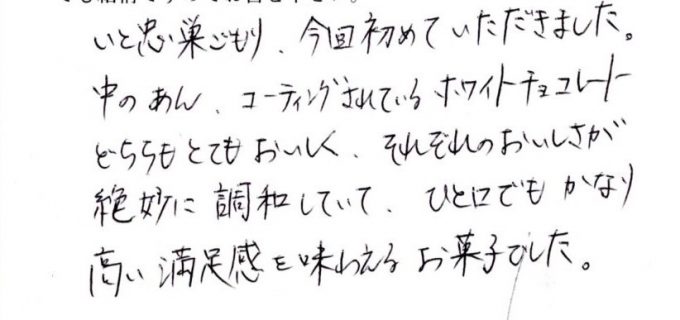 いと忠巣ごもり、今回初めていただきました。
中のあん、コーティングされているホワイトチョコレート
どちらもとてもおいしく、それぞれのおいしさが
絶妙に調和していて、ひと口でもかなり
高い満足感を味わえるお菓子でした。